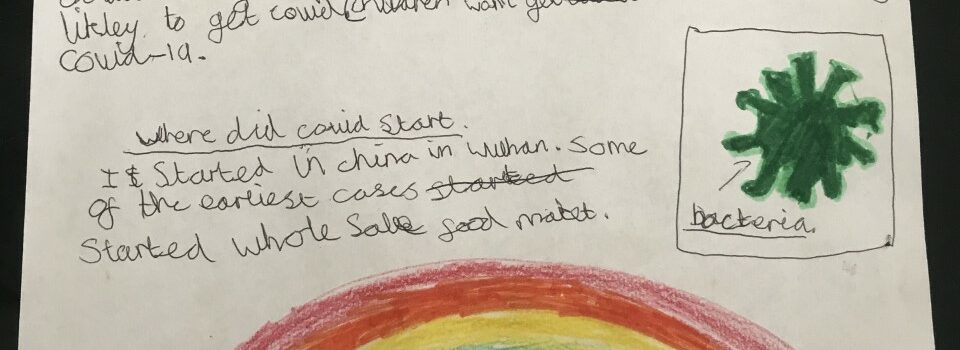 likley to get covid children want get
covid-19.
where did covid start.
It started in china in wuhan. Some
of the earliest cases started
Started whole sale food maket.
bacteria.